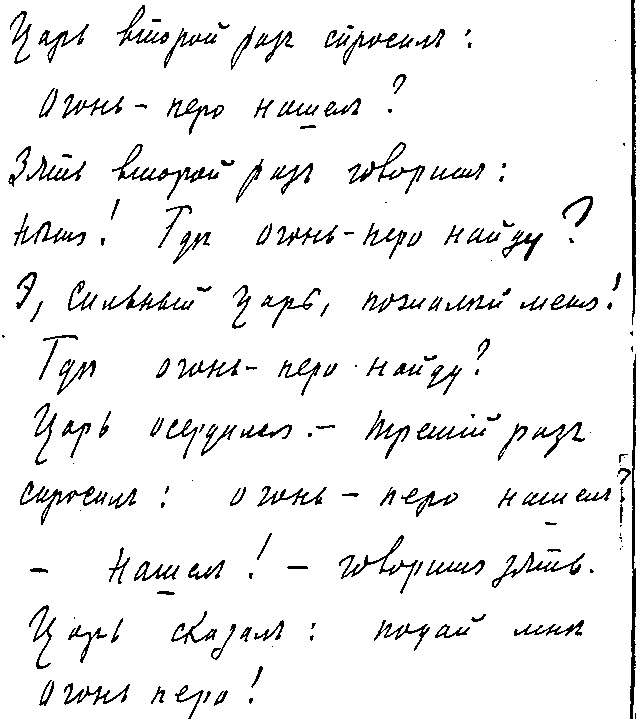 Царь второй разъ спросилъ:
Огонь-перо нашелъ?
Зять второй разъ говоритъ:
нѣтъ! Гдѣ огонь-перо найду?
Э, сильный царь, пожалѣй меня!
Гдѣ огонь-перо найду?
Царь осердился.- третiй разъ
спросилъ: огонь-перо нашелъ?
- Нашелъ! - говоритъ зять.
Царь сказалъ: подай мнѣ
огонь перо!